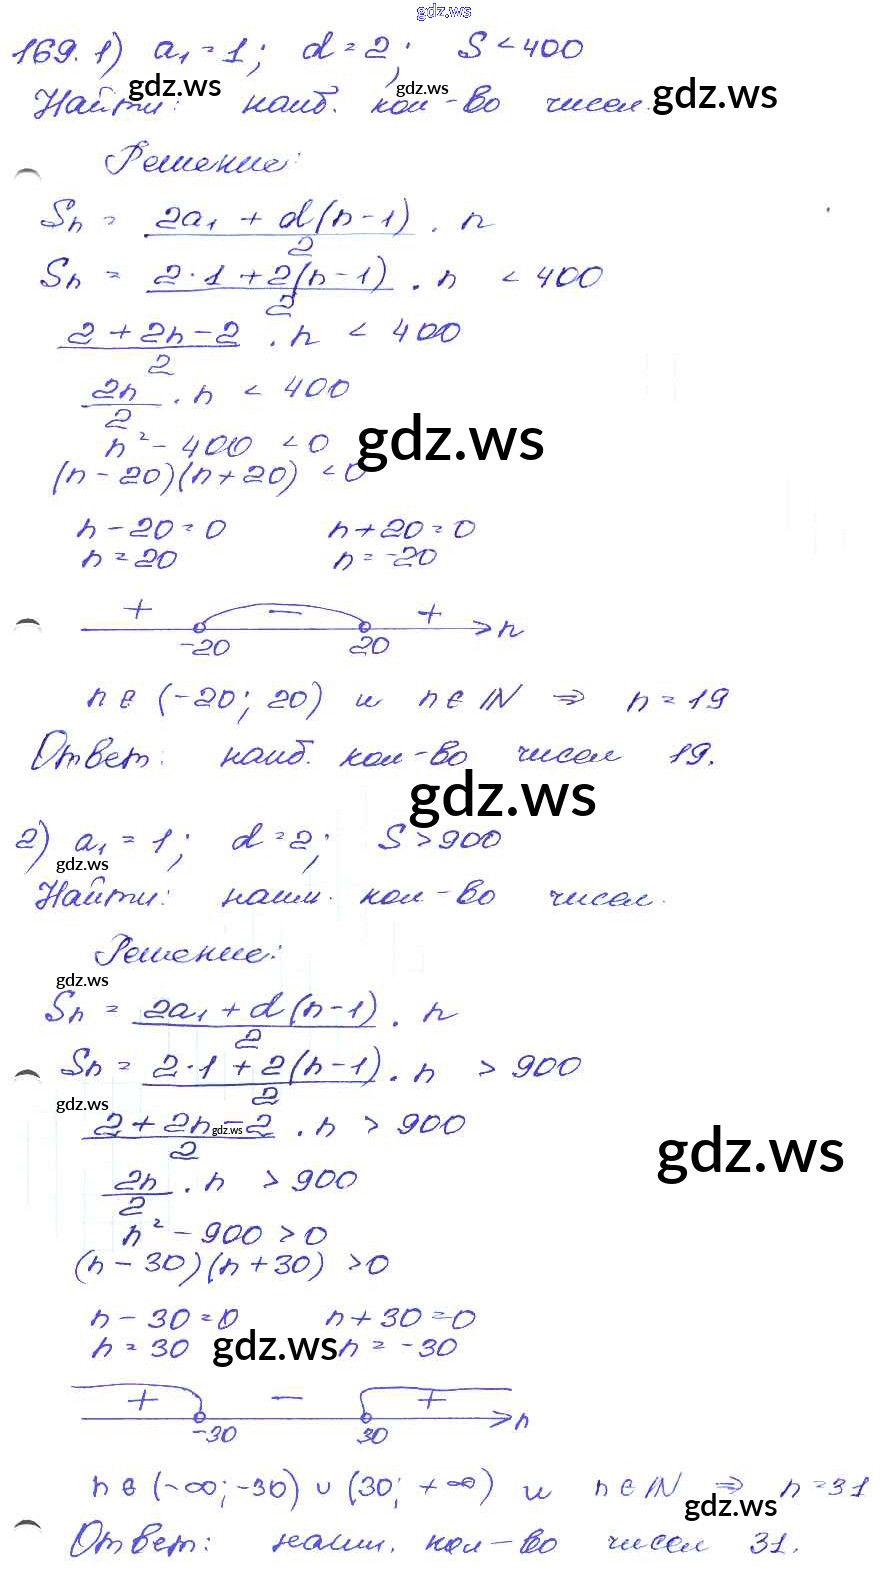 gdz.ws
169. 1) a₁ = 1; d = 2; S < 400
gdz.ws gdz.ws gdz.ws
Найти: наиб. кол-во чисел.
Решение:
Sₙ = (2a₁ + d(n-1))/2 · n
Sₙ = (2·1 + 2(n-1))/2 · n < 400
(2 + 2n - 2)/2 · n < 400
2n/2 · n < 400
n² - 400 < 0
gdz.ws
(n - 20)(n + 20) < 0
n - 20 = 0 n + 20 = 0
n = 20 n = -20
+ - +
-20 20 n
n ∈ (-20; 20) и n ∈ N ⇒ n = 19
Ответ: наиб. кол-во чисел 19.
gdz.ws
2) a₁ = 1; d = 2; S > 900
gdz.ws
Найти: наим. кол-во чисел.
Решение:
gdz.ws
Sₙ = (2a₁ + d(n-1))/2 · n
Sₙ = (2·1 + 2(n-1))/2 · n > 900
gdz.ws
(2 + 2n - 2)/2 · n > 900
gdz.ws
gdz.ws
2n/2 · n > 900
n² - 900 > 0
(n - 30)(n + 30) > 0
n - 30 = 0 n + 30 = 0
n = 30 gdz.ws n = -30
+ - +
-30 30 n
n ∈ (-∞; -30) ∪ (30; +∞) и n ∈ N ⇒ n = 31
gdz.ws
Ответ: наим. кол-во чисел 31.